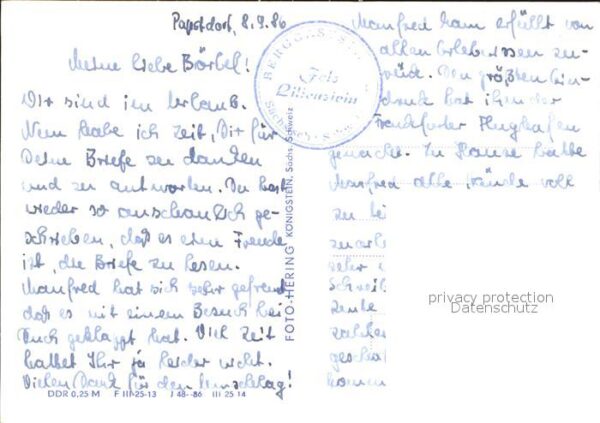 Papstdorf, 8.9.86
Meine liebe Bärbel!
Wir sind im Urlaub.
Nun habe ich Zeit, Dir für
Deine Briefe zu danken
und zu antworten. Du hast
wieder so anschaulich ge-
schrieben, daß es eine Freude
ist, die Briefe zu lesen.
Manfred hat sich sehr gefreut,
daß es mit einem Besuch bei
Euch geklappt hat. Viel Zeit
hattet Ihr ja leider nicht.
Vielen Dank für den Umschlag!
DDR 0,25 M F III-25-13 J 48--86 III 25 14
FOTO-HERING KÖNIGSTEIN, Sächs. Schweiz
BERGGASTST
Fels
Lilienstein
Sächsische S
Manfred kam erfüllt von
allen Erlebnissen zu-
rück. Den größten Ein-
druck hat ihm der
Frankfurter Flughafen
gemacht. Zu Hause hatte
Manfred alle Hände voll
zu
sehr
Schrei
gescha
komm
privacy protection
Datenschutz